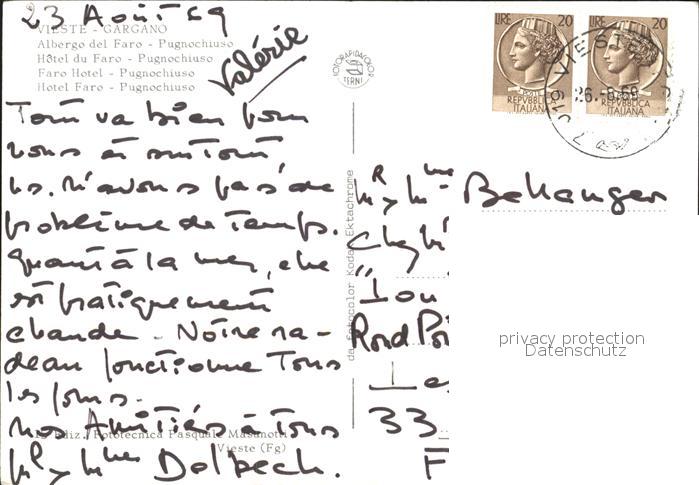 23 Août 69
VIESTE - GARGANO
Albergo del Faro - Pugnochiuso
Hôtel du Faro - Pugnochiuso
Faro Hotel - Pugnochiuso
Hotel Faro - Pugnochiuso
Valérie
FOTORAPIDACOLOR
TERNI
LIRE 20
REPVBBLICA
ITALIANA
LIRE 20
REPVBBLICA
ITALIANA
VIESTE
26.-8.69
Tout va bien pour
nous et surtout
ns. n'avons pas de
problème de Temps.
Quant à la mer, elle
est pratiquement
chaude. Notre ra-
deau fonctionne Tous
les jours.
Nos Amitiés à Tous
Mr & Mme Delpech.
Ediz. Fototecnica Pasquale Masanotti
Vieste (Fg)
da Fotocolor Kodak Ektachrome
Mr & Mme Bellanger
Chez M
" Lou
Rond Poi
33
F
privacy protection
Datenschutz